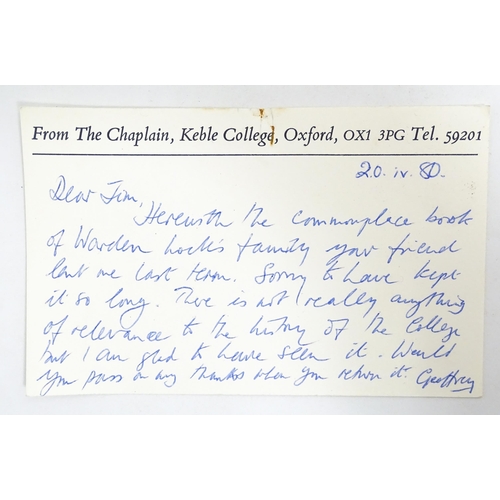 From The Chaplain, Keble College, Oxford, OX1 3PG Tel. 59201
20. iv. 80.
Dear Jim,
Herewith the commonplace book
of Warden Lock's family your friend
lent me last term. Sorry to have kept
it so long. There is not really anything
of relevance to the history of the College
but I am glad to have seen it. Would
you pass on my thanks when you return it. Geoffrey